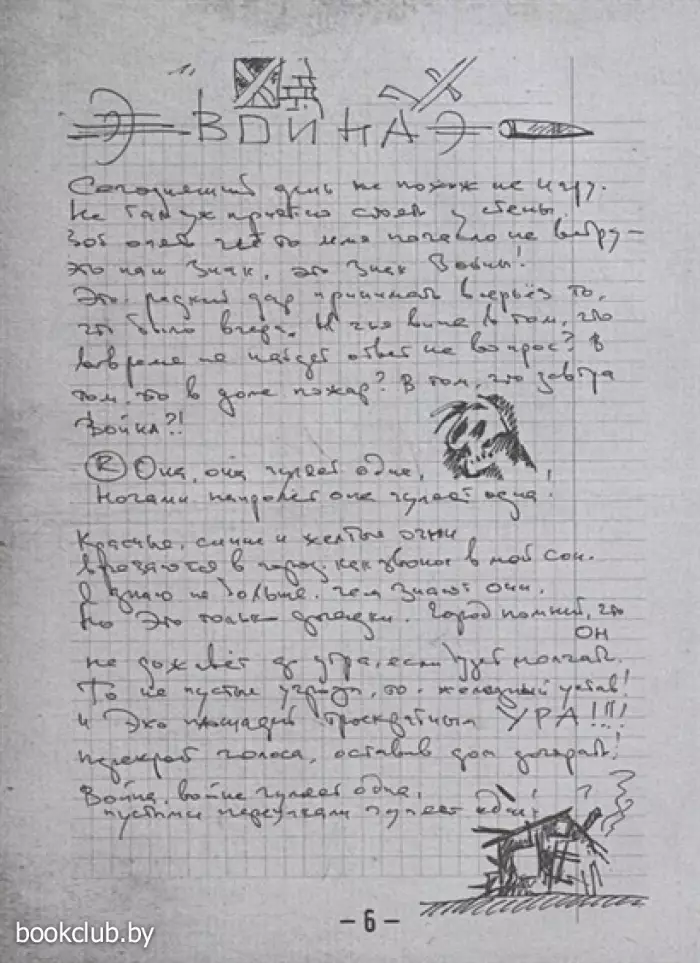 ВОЙНА
Сегодняшний день не похож на игру.
Не так уж приятно стоять у стены,
Вот опять что-то меня на ветру —
это наш Знак, это Знак Войны!
Это редкий дар принимать всерьёз то,
что было вчера. И чья вина в том, что
вовремя не найдет ответ на вопрос? В
том, что в доме пожар? В том, что завтра
Война?!
R Она, она гуляет одна,
Ночами напролёт она гуляет одна!
Красные, синие и желтые огни
врезаются в город, как звонок в мой сон.
Я знаю не больше, чем знают они.
Но это только догадки. Город помнит, что
он
не доживёт до утра, если будет молчать.
То не пустые угрозы, то - железный устав!
и Эхо площадей троекратным УРА!!!!
перекроет голоса, оставив дом догорать!
Война, война гуляет одна,
пустыми переулками гуляет одна!
– 6 –
bookclub.by